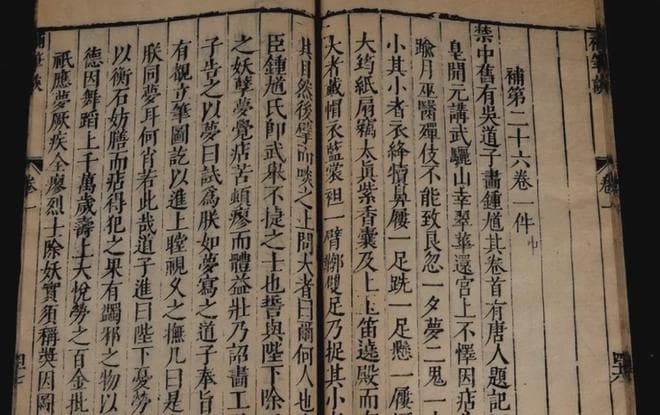 補筆談 卷一
補第二十六卷一件
禁中舊有吳道子畫鍾馗其卷首有唐人題記
皇開元講武驪山幸翠華還宮上不懌因痁
踰月巫醫殫伎不能致良忽一夕夢二鬼一
小其小者衣絳犢鼻屨一足跣一足懸一屨
大筠紙扇竊太真紫香囊及上玉笛遶殿而
大者戴帽衣藍裳袒一臂鞹雙足乃捉其小
其目然後擘而啖之上問大者曰爾何人也
臣鍾馗氏即武舉不捷之士也誓與陛下除
之妖孽夢覺痁苦頓瘳而體益壯乃詔畫工
子告之以夢曰試為朕如夢寫之道子奉旨
有覩立筆圖訖以進上瞠視久之撫几曰是
朕同夢耳何肖若此哉道子進曰陛下憂勞
以衡石妨膳而痁得犯之果有蠲邪之物以
德因舞蹈上千萬歲壽上大悅勞之百金批
祇應夢厥疾全瘳烈士除妖實須稱獎因圖
補筆談 卷一 四七